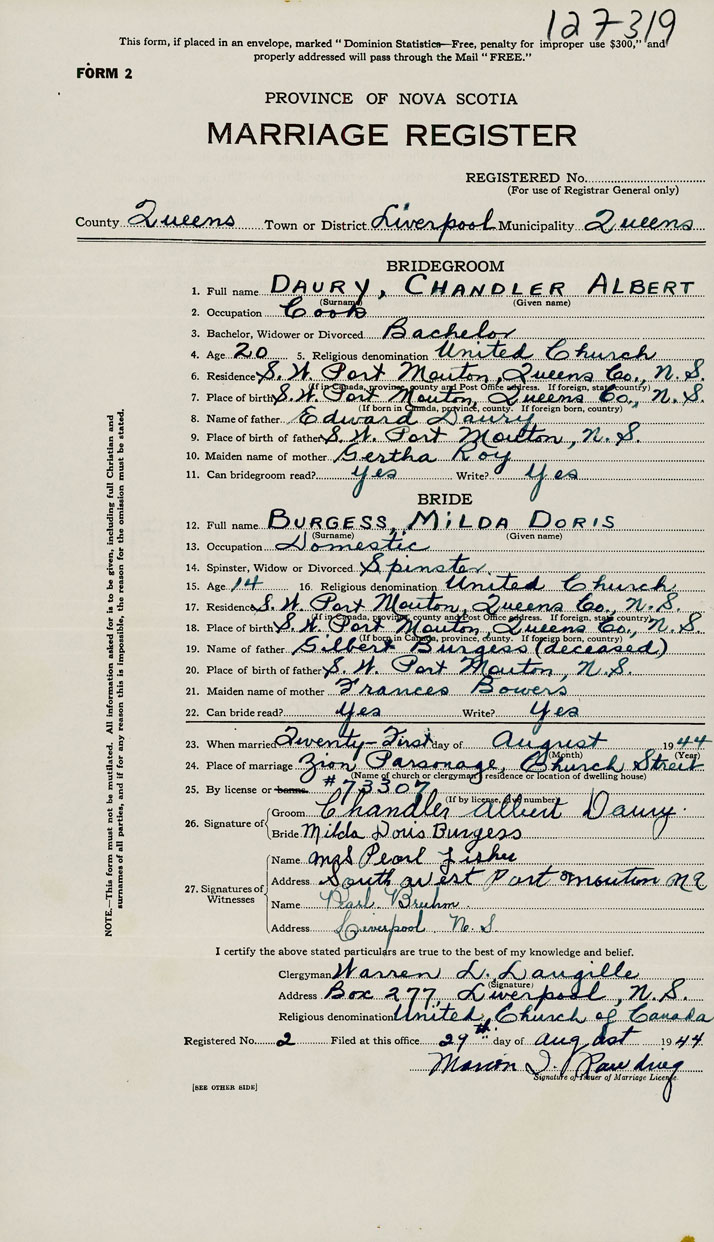 127319
This form, if placed in an envelope, marked "Dominion Statistics—Free, penalty for improper use $300," and
properly addressed will pass through the Mail "FREE."
FORM 2
PROVINCE OF NOVA SCOTIA
MARRIAGE REGISTER
REGISTERED No.
(For use of Registrar General only)
County Queens Town or District Liverpool Municipality Queens
BRIDEGROOM
1. Full name DAURY, CHANDLER ALBERT
(Surname) (Given name)
2. Occupation Cook
3. Bachelor, Widower or Divorced Bachelor
4. Age 20 5. Religious denomination United Church
6. Residence S. W. Port Mouton, Queens Co., N. S.
(If in Canada, province, county and Post Office address. If foreign, state country)
7. Place of birth S. W. Port Mouton, Queens Co., N. S.
(If born in Canada, province, county. If foreign born, country)
8. Name of father Edward Daury
9. Place of birth of father S. W. Port Mouton, N. S.
10. Maiden name of mother Gertha Roy
11. Can bridegroom read? Yes Write? Yes
BRIDE
12. Full name BURGESS, MILDA DORIS
(Surname) (Given name)
13. Occupation Domestic
14. Spinster, Widow or Divorced Spinster
15. Age 14 16. Religious denomination United Church
17. Residence S. W. Port Mouton, Queens Co., N. S.
(If in Canada, province, county and Post Office address. If foreign, state country)
18. Place of birth S. W. Port Mouton, Queens Co., N. S.
(If born in Canada, province, county. If foreign born, country)
19. Name of father Gilbert Burgess (deceased)
20. Place of birth of father S. W. Port Mouton, N. S.
21. Maiden name of mother Frances Bowers
22. Can bride read? Yes Write? Yes
23. When married Twenty-First day of August 1944
(Month) (Year)
24. Place of marriage Zion Parsonage, Church Street
(Name of church or clergyman's residence or location of dwelling house)
25. By license or banns #73307
(If by license, give number)
26. Signature of
Groom Chandler Albert Daury
Bride Milda Doris Burgess
27. Signatures of Witnesses
Name Mrs Pearl Fisher
Address South West Port Mouton N S
Name Pearl Bruhm
Address Liverpool N. S.
I certify the above stated particulars are true to the best of my knowledge and belief.
Clergyman Warren L. Langille
(Signature)
Address Box 277, Liverpool, N. S.
Religious denomination United Church of Canada
Registered No. 2 Filed at this office 29th day of August 1944
Marion
Signature of Issuer of Marriage License
[SEE OTHER SIDE]
NOTE.—This form must not be mutilated. All information asked for is to be given, including full Christian and
surnames of all parties, and if for any reason this is impossible, the reason for the omission must be stated.